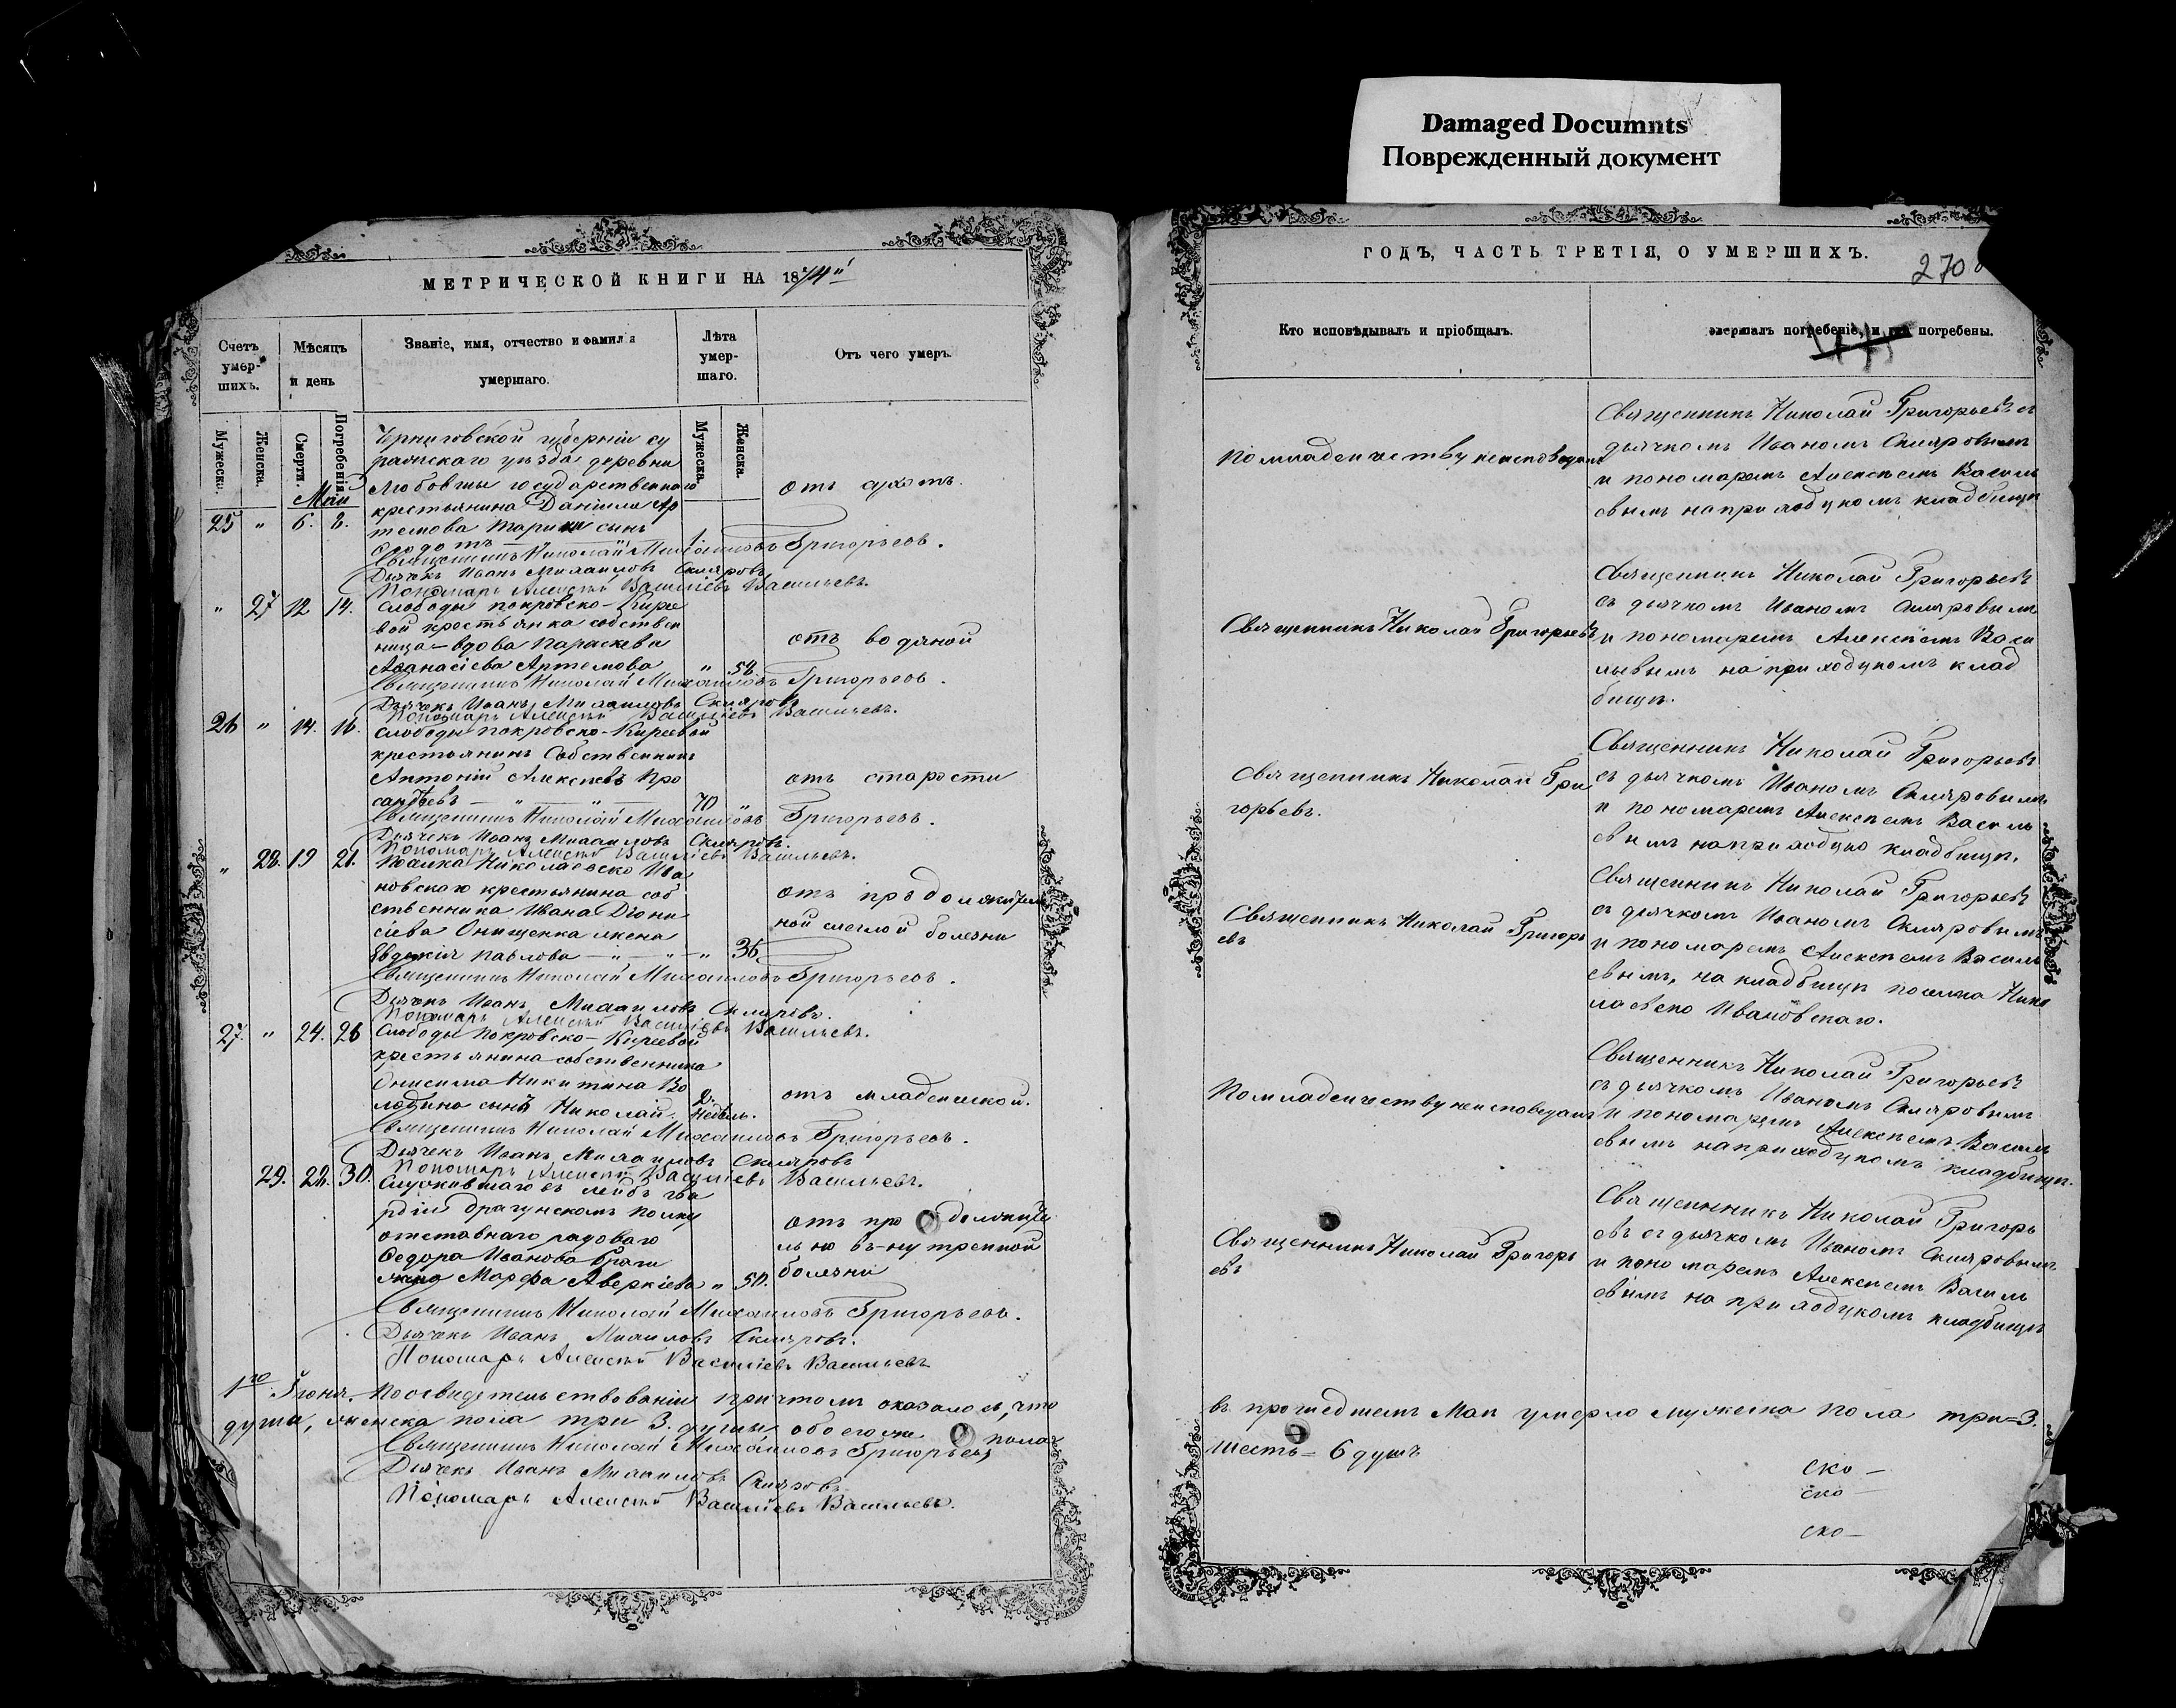 Damaged Documnts
Поврежденный документ
МЕТРИЧЕСКОЙ КНИГИ НА 1874
Счетъ умер-шихъ.
Мѣсяцъ и день
Званіе, имя, отчество и фамилія умершаго.
Лѣта умер-шаго.
Отъ чего умеръ.
Мужеска.
Женска.
Смерти.
Погребенія.
Мужеска.
Женска.
Май
25 " 6. 8.
Черниговской губерніи су
ражскаго уѣзда деревни
государственнаго
крестьянина Даніила Ар
темова сынъ
1.
отъ
Священникъ Николай Михаиловъ Григорьевъ.
Дьячекъ Иванъ Михаиловъ Скляровъ
Пономарь Алексѣй Василіевъ Васильевъ.
" 27 12 14.
Слободы Покровско-Кирѣе
вой крестьянка собствен
ница вдова Параскева
Аѳанасіева Артемова " 58.
отъ водяной
Священникъ Николай Михаиловъ Григорьевъ.
Дьячекъ Иванъ Михаиловъ Скляровъ
Пономарь Алексѣй Василіевъ Васильевъ.
26 " 14. 16.
Слободы Покровско-Кирѣевой
крестьянинъ Собственникъ
Антоній Алексѣевъ Про
70 "
отъ старости
Священникъ Николай Михаиловъ Григорьевъ.
Дьячекъ Иванъ Михаиловъ Скляровъ.
Пономарь Алексѣй Василіевъ Васильевъ.
" 28. 19 21.
Николаевско Ива
новскаго крестьянина соб
ственника Ивана Діони
сіева Онищенка жена
Евдокія Павлова — " — " — " 36.
отъ продолжитель
ной болезни
Священникъ Николай Михаиловъ Григорьевъ.
Дьячекъ Иванъ Михаиловъ Скляровъ.
Пономарь Алексѣй Василіевъ Васильевъ.
27. " 24. 26
Слободы Покровско-Кирѣевой
крестьянина-собственника
Онисима Никитина Во
лодина сынъ Николай. 2. недѣль.
отъ младенческой.
Священникъ Николай Михаиловъ Григорьевъ.
Дьячекъ Иванъ Михаиловъ Скляровъ
Пономарь Алексѣй Василіевъ Васильевъ.
29. 28. 30.
Служившаго въ лейбъ гва
рдіи драгунскомъ полку
отставнаго рядоваго
Ѳедора Иванова
жена Марѳа Аверкіева " 50.
отъ продолжите
льно внутренной
болезни
Священникъ Николай Михаиловъ Григорьевъ.
Дьячекъ Иванъ Михаиловъ Скляровъ.
Пономарь Алексѣй Василіевъ Васильевъ
1го Іюня. По освидетельствованіи причтомъ оказалось, что
душа, женска пола три 3. души, обоего же пола
Священникъ Николай Михаиловъ Григорьевъ
Дьячекъ Иванъ Михаиловъ Скляровъ
Пономарь Алексѣй Василіевъ Васильевъ.
ГОДЪ, ЧАСТЬ ТРЕТІЯ, О УМЕРШИХЪ.
270
Кто исповѣдывалъ и пріобщалъ.
овершалъ погребеніе, и гдѣ погребены.
По младенчеству неисповеданъ
Священникъ Николай Григорьевъ съ
дьячкомъ Иваномъ Скляровымъ
и пономаремъ Алексѣемъ Василь
евымъ на приходскомъ кладбищѣ
Священникъ Николай Григорьевъ
Священникъ Николай Григорьевъ
съ дьячкомъ Иваномъ Скляровымъ
и пономаремъ Алексѣемъ Васи
льевымъ на приходскомъ клад
бищѣ.
Священникъ Николай Гри
горьевъ.
Священникъ Николай Григорьевъ
съ дьячкомъ Иваномъ Скляровымъ
и пономаремъ Алексѣемъ Василь
евымъ на приходско кладбищѣ.
Священникъ Николай Григорь
евъ
Священникъ Николай Григорьевъ
съ дьячкомъ Иваномъ Скляровымъ
и пономаремъ Алексѣемъ Василь
евымъ, на кладбищѣ поселка Нико
лаевско Ивановскаго.
По младенчеству неисповеданъ
Священникъ Николай Григорьевъ
съ дьячкомъ Иваномъ Скляровымъ
и пономаремъ Алексѣемъ Василь
евымъ на приходскомъ кладбищѣ.
Священникъ Николай Григорь
евъ
Священникъ Николай Григорь
евъ съ дьячкомъ Иваномъ Скляровымъ
и пономаремъ Алексѣемъ Василь
евымъ на приходскомъ кладбищѣ
въ прошедшемъ Маѣ умерло мужеска пола три=3.
шесть — 6 душъ
ско —
ско —
ско —